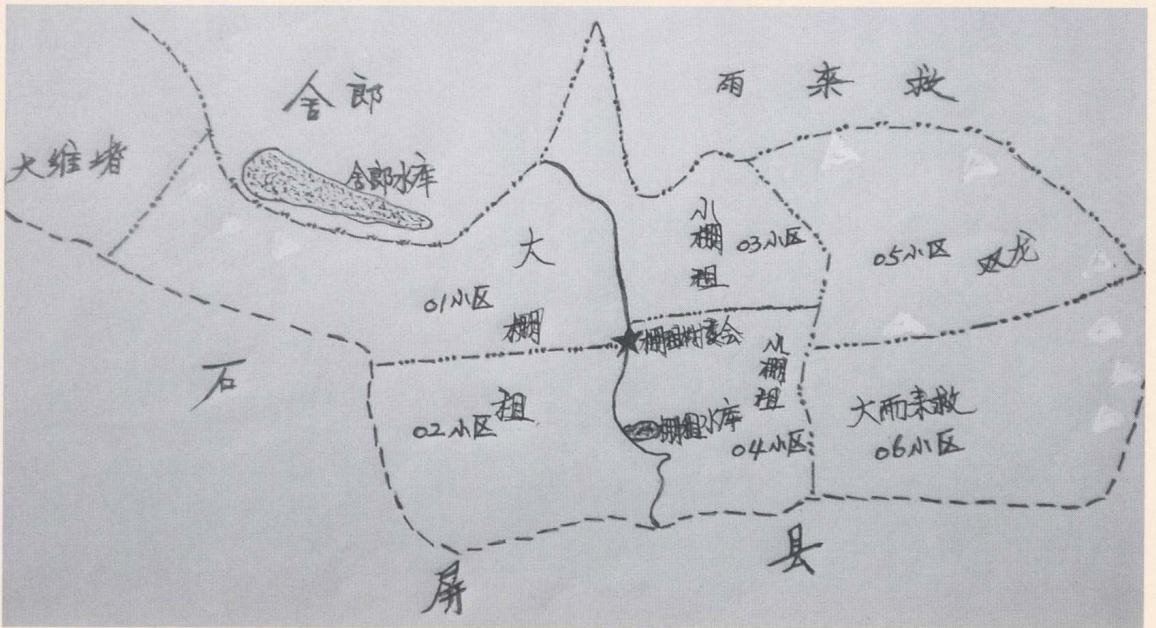 舍郎
雨来救
大维堵
舍郎水库
大棚租
小棚租
03小区
05小区
双龙
01小区
棚租村委会
小棚租
石屏县
02小区
棚租水库
04小区
大雨来救
06小区